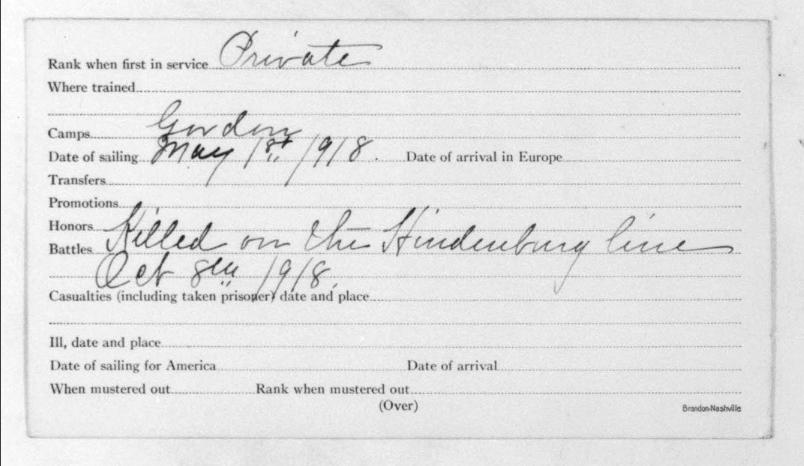 Rank when first in service Private
Where trained
Camps Gordon
Date of sailing May 1st, 1918. Date of arrival in Europe
Transfers
Promotions
Honors
Battles Killed on the Hindenburg line
Oct 8th 1918.
Casualties (including taken prisoner) date and place
Ill, date and place
Date of sailing for America Date of arrival
When mustered out Rank when mustered out
(Over)
Brandon-Nashville